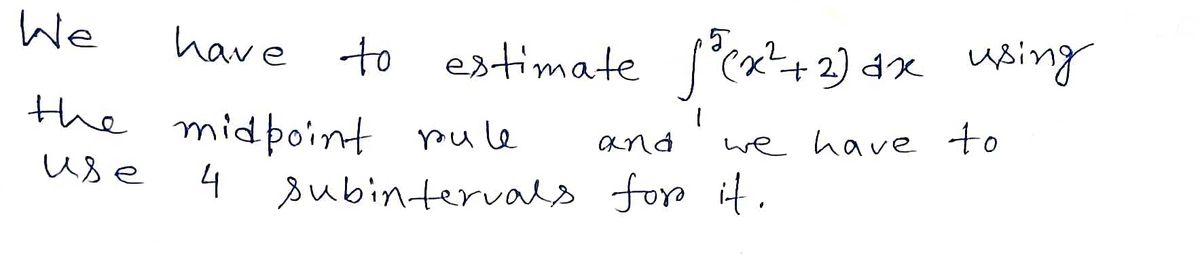 We have to estimate ∫₁⁵(x²+2) dx using
the midpoint rule and we have to
use 4 subintervals for it.